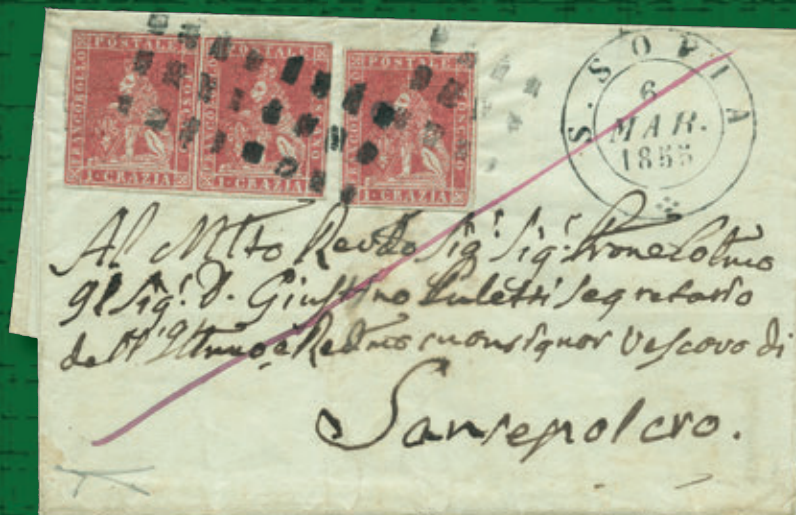 FRANCOBOLLO POSTALE TOSCANO
1 · CRAZIA
FRANCOBOLLO POSTALE TOSCANO
1 · CRAZIA
FRANCOBOLLO POSTALE TOSCANO
1 · CRAZIA
S. SOFIA
6
MAR.
1855
Al Mlto Revdo Sigr. Sigr. Prone Colmo
Il Sigr. D. Giustino Puletti Segretario
dell' Illmo e Redmo monsignor Vescovo di
Sansepolcro.